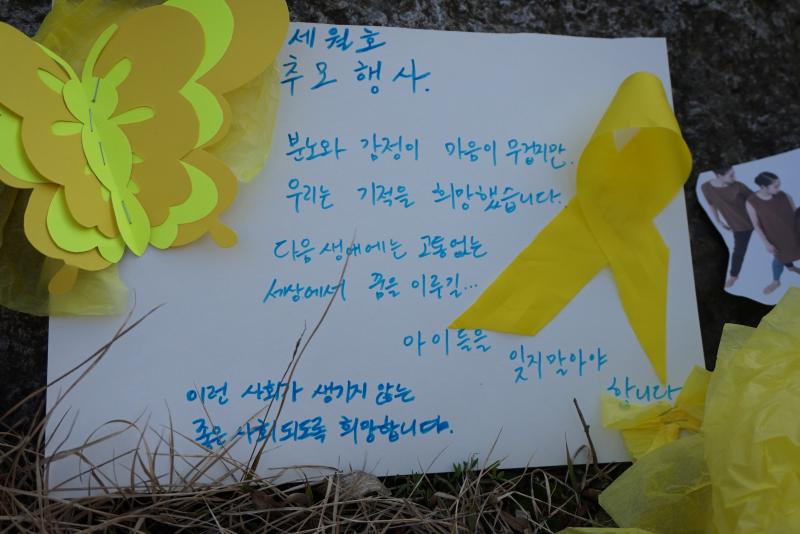 세월호
추모 행사.
분노와 감정이 마음이 무겁지만.
우리는 기적을 희망했습니다.
다음 생애에는 고통없는
세상에서 꿈을 이루길...
아이들을
잊지말아야
합니다
이런 사회가 생기지 않는
좋은 사회되도록 희망합니다.